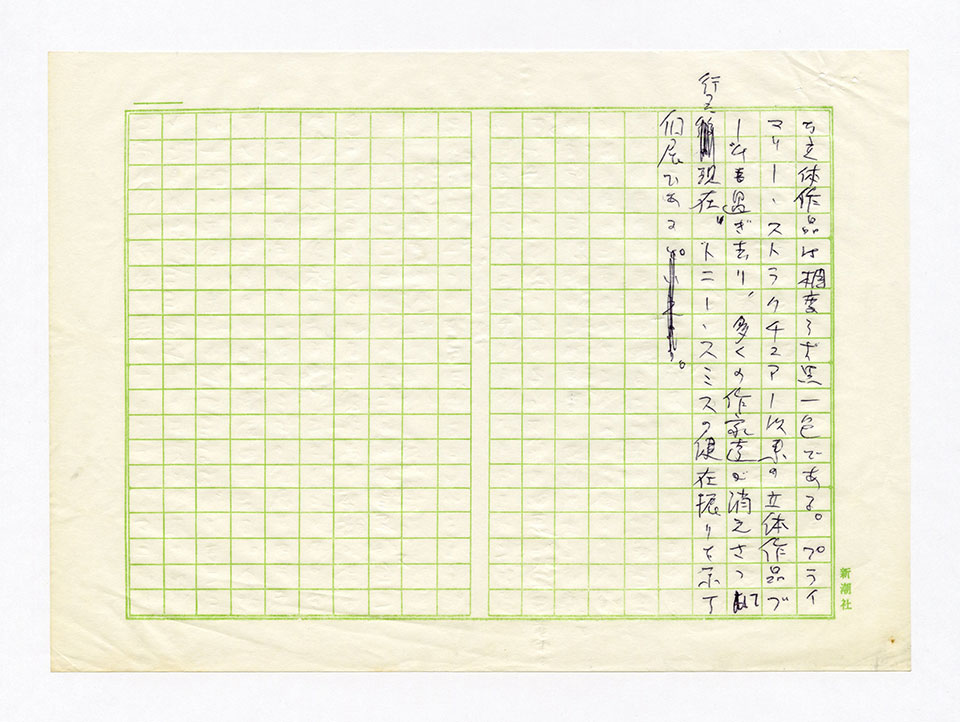 ち立体作品は相変らず黒一色である。プライ
マリー・ストラクチュアー以来の立体作品ブ
ームも過ぎ去り、多くの作家達が消えさって
行く現在、トニー・スミスの健在振りを示す
個展である。
新潮社